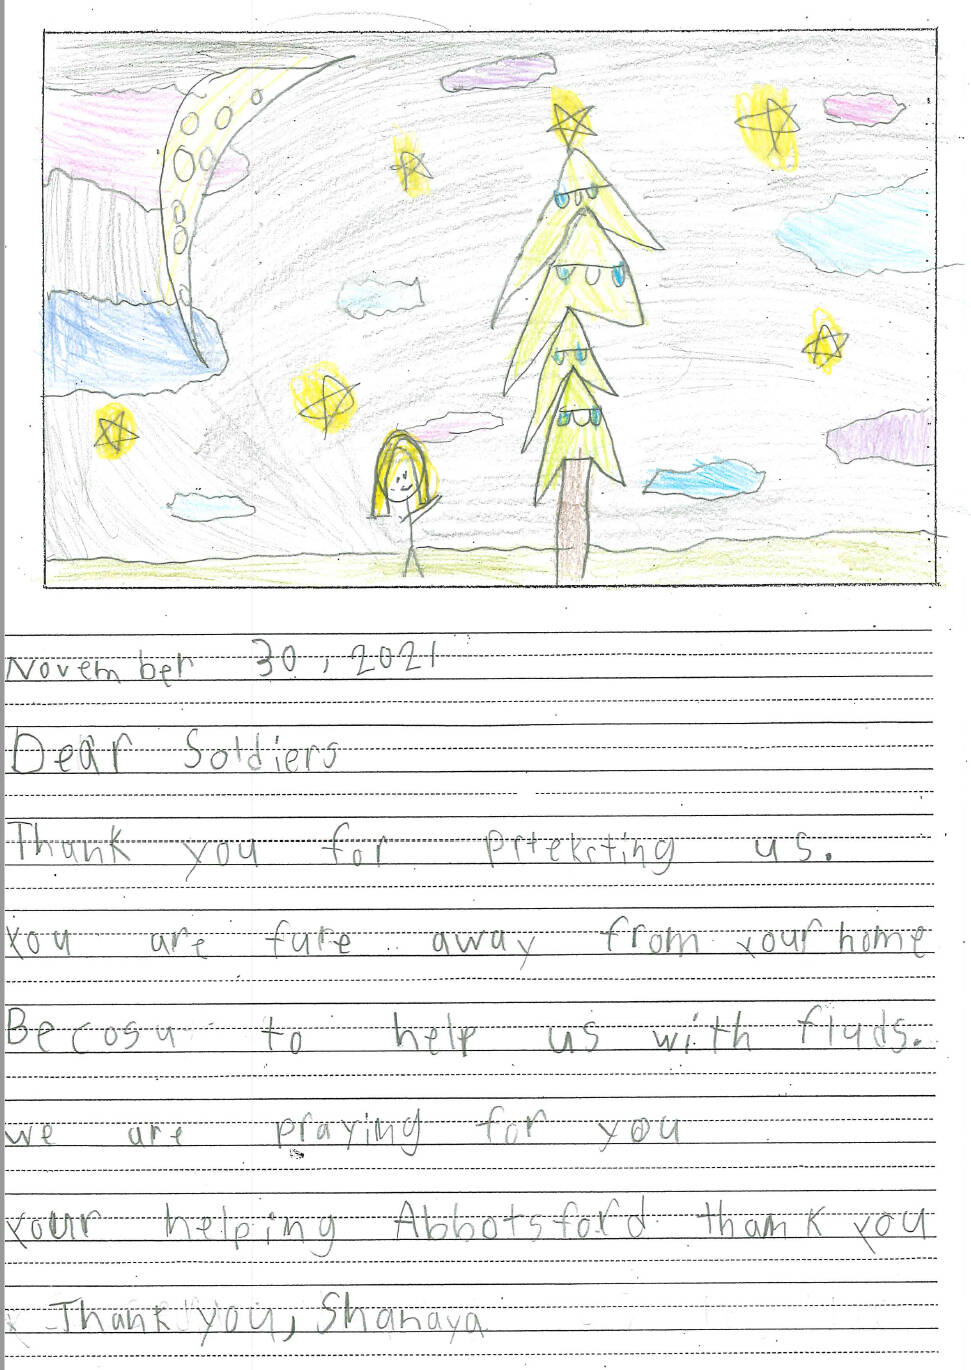 November 30, 2021
Dear Soldiers
Thank you for prtekcting us.
you are fure away from your home
Becosu to help us with fluds.
we are praying for you
your helping Abbotsford thank you
Thank you, Shanaya